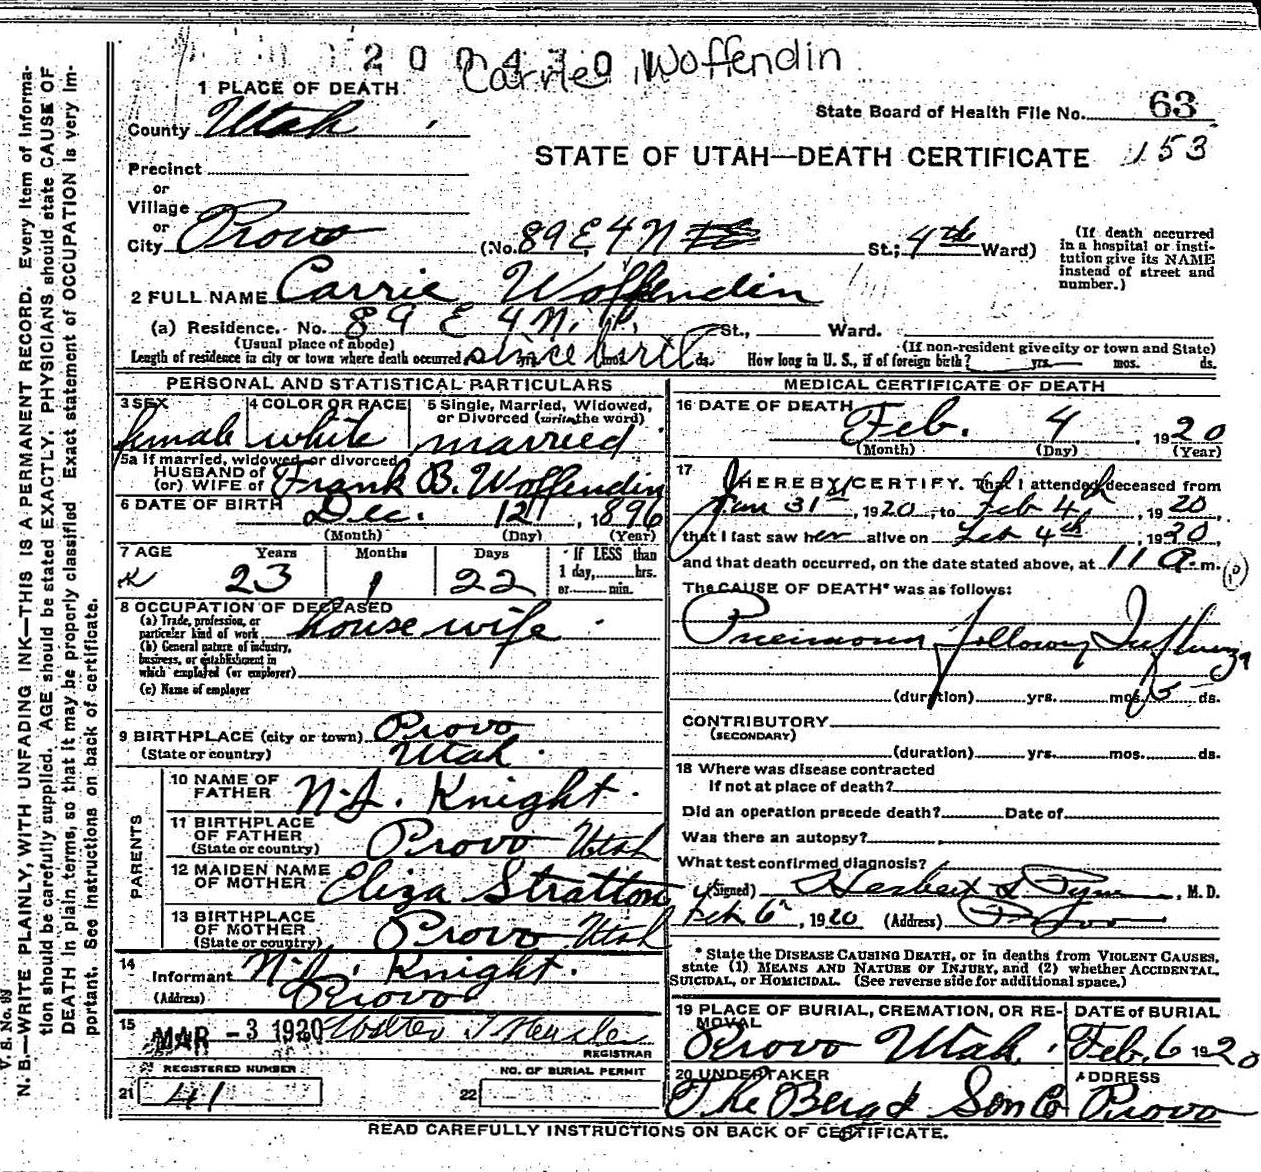 2 0 0 4 3 0 1
Carrie Woffendin
1 PLACE OF DEATH
State Board of Health File No. 63
County Utah
STATE OF UTAH—DEATH CERTIFICATE 153
Precinct
or
Village
or
City Provo (No. 89 E 4 N St.; 4th Ward)
(If death occurred in a hospital or insti-
tution give its NAME
instead of street and
number.)
2 FULL NAME Carrie Woffendin
(a) Residence. No. 89 E 4 N. St., Ward.
(Usual place of abode) (If non-resident give city or town and State)
Length of residence in city or town where death occurred since birth mos. ds. How long in U. S., if of foreign birth? yrs. mos. ds.
PERSONAL AND STATISTICAL PARTICULARS
3 SEX 4 COLOR OR RACE 5 Single, Married, Widowed,
or Divorced (write the word)
female white married
5a If married, widowed, or divorced
HUSBAND of
(or) WIFE of Frank B. Woffendin
6 DATE OF BIRTH Dec. 12, 1896
(Month) (Day) (Year)
7 AGE Years Months Days If LESS than
1 day, hrs.
or min.
23 1 22
8 OCCUPATION OF DECEASED
(a) Trade, profession, or
particular kind of work house wife
(b) General nature of industry,
business, or establishment in
which employed (or employer)
(c) Name of employer
9 BIRTHPLACE (city or town) Provo
(State or country) Utah
PARENTS
10 NAME OF
FATHER N. J. Knight
11 BIRTHPLACE
OF FATHER
(State or country) Provo Utah
12 MAIDEN NAME
OF MOTHER Eliza Stratton
13 BIRTHPLACE
OF MOTHER
(State or country) Provo Utah
14
Informant N. J. Knight
(Address) Provo
15 MAR -3 1920 Walter T
REGISTRAR
REGISTERED NUMBER NO. OF BURIAL PERMIT
21 41 22
MEDICAL CERTIFICATE OF DEATH
16 DATE OF DEATH Feb. 4, 1920
(Month) (Day) (Year)
17 I HEREBY CERTIFY, That I attended deceased from
Jan 31st, 1920, to Feb 4th, 1920,
that I last saw her alive on Feb 4th, 1920,
and that death occurred, on the date stated above, at 11 a. m.
The CAUSE OF DEATH* was as follows:
Pneumonia following Influenza
(duration) yrs. mos. 5 ds.
CONTRIBUTORY
(SECONDARY)
(duration) yrs. mos. ds.
18 Where was disease contracted
If not at place of death?
Did an operation precede death? Date of
Was there an autopsy?
What test confirmed diagnosis?
(Signed) Herbert S Pyne, M. D.
Feb 6, 1920 (Address) Provo
* State the DISEASE CAUSING DEATH, or in deaths from VIOLENT CAUSES,
state (1) MEANS AND NATURE OF INJURY, and (2) whether ACCIDENTAL,
SUICIDAL, or HOMICIDAL. (See reverse side for additional space.)
19 PLACE OF BURIAL, CREMATION, OR RE-
MOVAL
DATE OF BURIAL
Provo Utah. Feb. 6 1920
20 UNDERTAKER ADDRESS
The Berg & Son Co Provo
READ CAREFULLY INSTRUCTIONS ON BACK OF CERTIFICATE.
V. S. No. 98
N. B.—WRITE PLAINLY, WITH UNFADING INK—THIS IS A PERMANENT RECORD. Every item of informa-
tion should be carefully supplied. AGE should be stated EXACTLY. PHYSICIANS should state CAUSE OF
DEATH in plain terms, so that it may be properly classified. Exact statement of OCCUPATION is very im-
portant. See instructions on back of certificate.